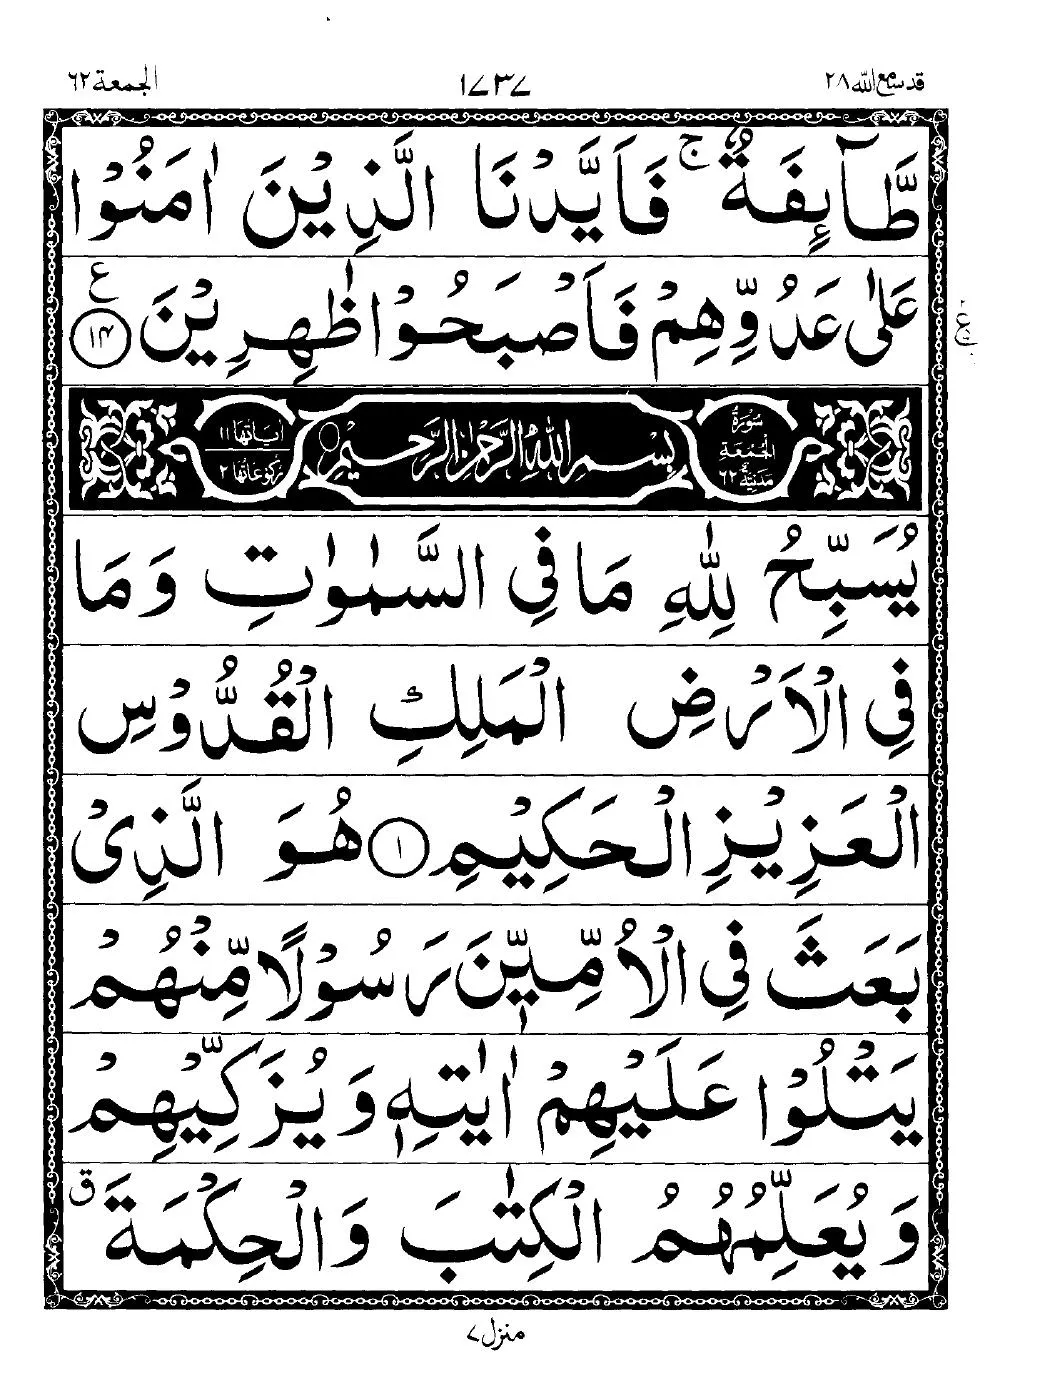 قد سمع الله ۲۸
۱۷۳۷
الجمعة ۶۲
طَّآئِفَةٌ ۚ فَاَيَّدْنَا الَّذِيْنَ اٰمَنُوْا
عَلٰى عَدُوِّهِمْ فَاَصْبَحُوْا ظٰهِرِيْنَ ۱۴ ع
سُوْرَةُ الْجُمُعَةِ مَدَنِيَّةٌ ۶۲
بِسْمِ اللّٰهِ الرَّحْمٰنِ الرَّحِيْمِ
اٰيَاتُهَا ۱۱
رُكُوْعَاتُهَا ۲
يُسَبِّحُ لِلّٰهِ مَا فِي السَّمٰوٰتِ وَمَا
فِي الْاَرْضِ الْمَلِكِ الْقُدُّوْسِ
الْعَزِيْزِ الْحَكِيْمِ ۱ هُوَ الَّذِيْ
بَعَثَ فِي الْاُمِّيّٖنَ رَسُوْلًا مِّنْهُمْ
يَتْلُوْا عَلَيْهِمْ اٰيٰتِهٖ وَيُزَكِّيْهِمْ
وَيُعَلِّمُهُمُ الْكِتٰبَ وَالْحِكْمَةَ ق
منزل ۷